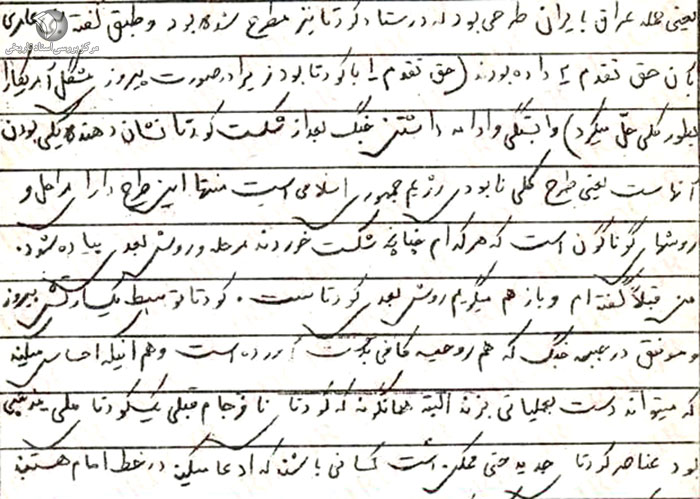 یعنی حمله عراق با ایران طرحی بود که در ستاد کودتا نیز مطرح شده بود و طبق گفته عامری
مرکز بررسی اسناد تاریخی
بآن حق تقدم را داده بودند (حق تقدم را با کودتا بود زیرا در صورت پیروز مشکل آمریکا را
بطور کلی حل میکرد) وابستگی و ادامه داشتن جنگ بعد از شکست کودتا نشان دهنده یکی بودن
آنهاست یعنی طرح کلی نابودی رژیم جمهوری اسلامی است منتها این طرح دارای مراحل و
روشهای گوناگون است که هر کدام چنانچه شکست خوردند مرحله و روش بعدی پیاده شود.
من قبلاً گفته ام و باز هم میگویم روش بعدی کودتا است. کودتا توسط یک ارتش پیروز
و موفق در جبهه جنگ که هم روحیه کافی بدست آورده است و هم اینکه احساس میکند
که میتواند دست بعملیاتی بزند البته همانگونه که کودتا نافرجام قبلی یک کودتا ملی مذهبی
بود عناصر کودتا جدید حتی ممکن است کسانی باشند که ادعا میکنند در خط امام هستند